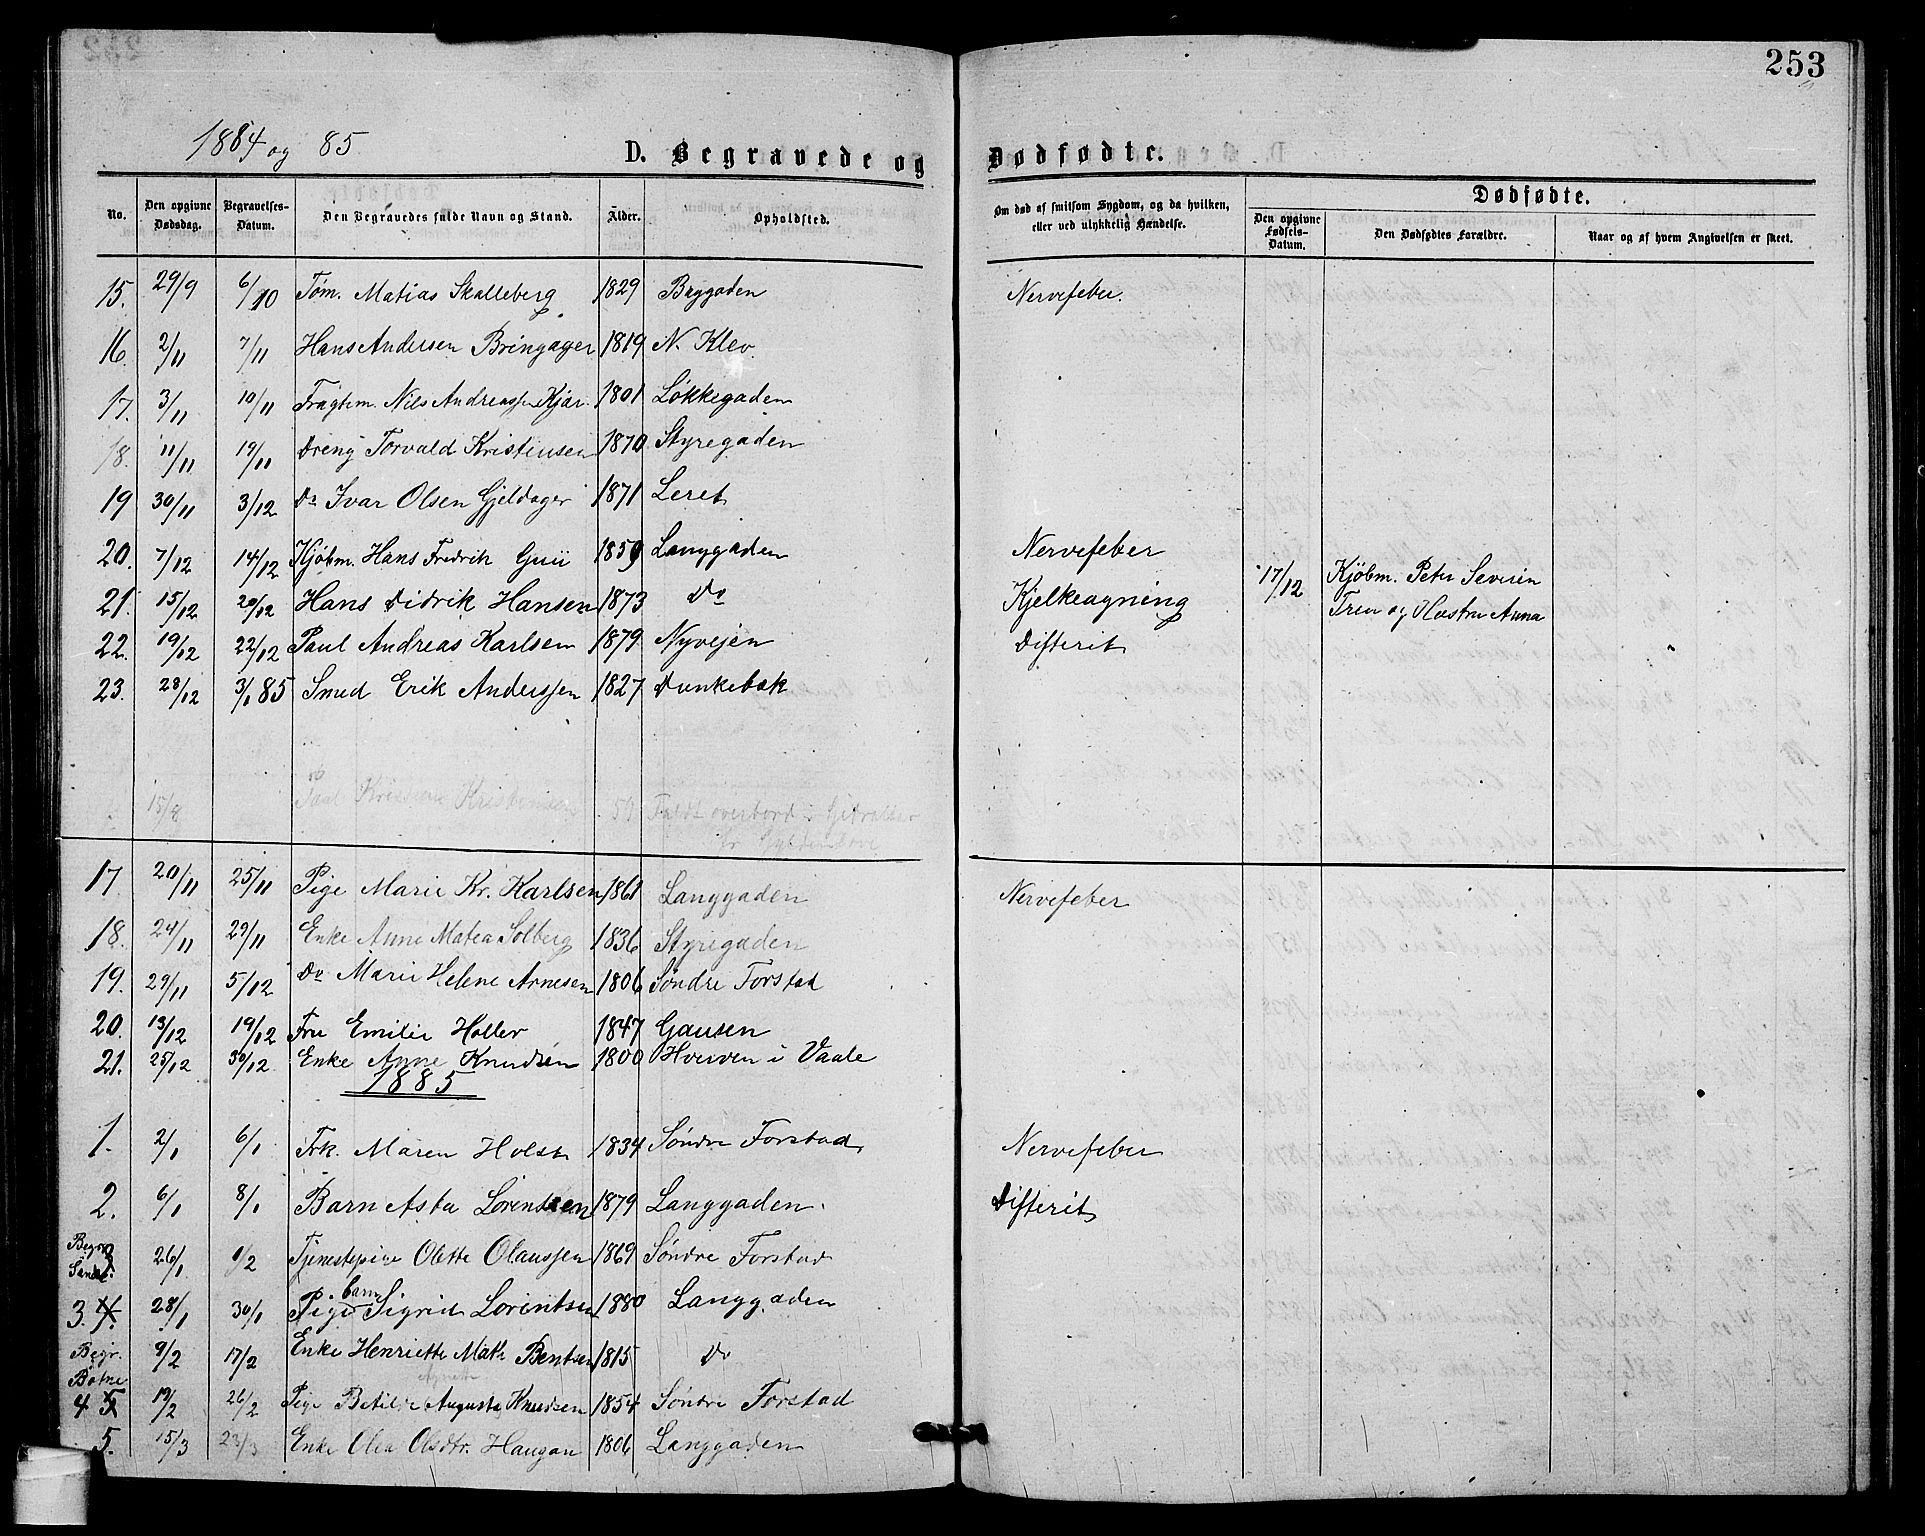 253
1884 og 85
D. Begravede og Dødfødte.
No. Den opgivne Dødsdag. Begravelses-Datum. Den Begravedes fulde Navn og Stand. Alder. Opholdsted. Om død af smitsom Sygdom, og da hvilken, eller ved ulykkelig Hændelse. Dødfødte. Den opgivne Fødsels-Datum. Den Dødfødtes Forældre. Naar og af hvem Angivelsen er skeet.
15. 29/9 6/10 Tøm. Matias Skalleberg 1829 Bryggaden Nervefeber.
16. 2/11 7/11 Hans Andersen Bringager 1819 N. Klev
17. 3/11 10/11 Fragtm. Nils Andreassen Kjær 1801 Løkkegaden
18. 11/11 19/11 Dreng Torvald Kristensen 1870 Styregaden
19 30/11 3/12 Do Ivar Olsen Gjeldager 1871 Leret
20. 7/12 14/12 Kjøbm. Hans Fredrik 1859 Langgaden Nervefeber
21. 15/12 20/12 Hans Didrik Hansen 1873 Do Kjelkeagning 17/12 Kjøbm. Peter Severin
og Hustru Anna
22. 19/12 22/12 Paul Andreas Karlsen 1879 Nyvejen Difterit
23. 28/12 3/1 85 Smed Erik Anderssen 1827 Dunkebæk
15/8 Kristensen 57 Faldt overbord i Gibraltar
fr Gyldenløve
17. 20/11 25/11 Pige Marie Kr. Karlsen 1861 Langgaden Nervefeber
18. 24/11 29/11 Enke Anne Matea Solberg 1836 Styregaden
19. 29/11 5/12 Do Marie Helene Arnesen 1806 Søndre Forstad
20. 13/12 19/12 Fru Emilie Holler 1847 Gausen
21. 25/12 30/12 Enke Anne Knudsen 1800 Hverven i Vaale
1885
1. 2/1 6/1 Frk. Maren Holst 1834 Søndre Forstad Nervefeber
2. 6/1 8/1 Barn Asta Lorentzen 1879 Langgaden. Difterit
Begr. Sande. 26/1 1/2 Tjenestepige Olette Olaussen 1869 Søndre Forstad
3. 4. 28/1 30/1 Pigebarn Sigrid Lorentsen 1880 Langgaden
Begr. Botne 9/2 17/2 Enke Henriette Math Bentsen 1815 Do
4 5 19/2 26/2 Pige Betilde Augusta Knudsen 1854 Søndre Forstad
5. 15/3 23/3 Enke Olea Olsdtr. Haugan 1806 Langgaden